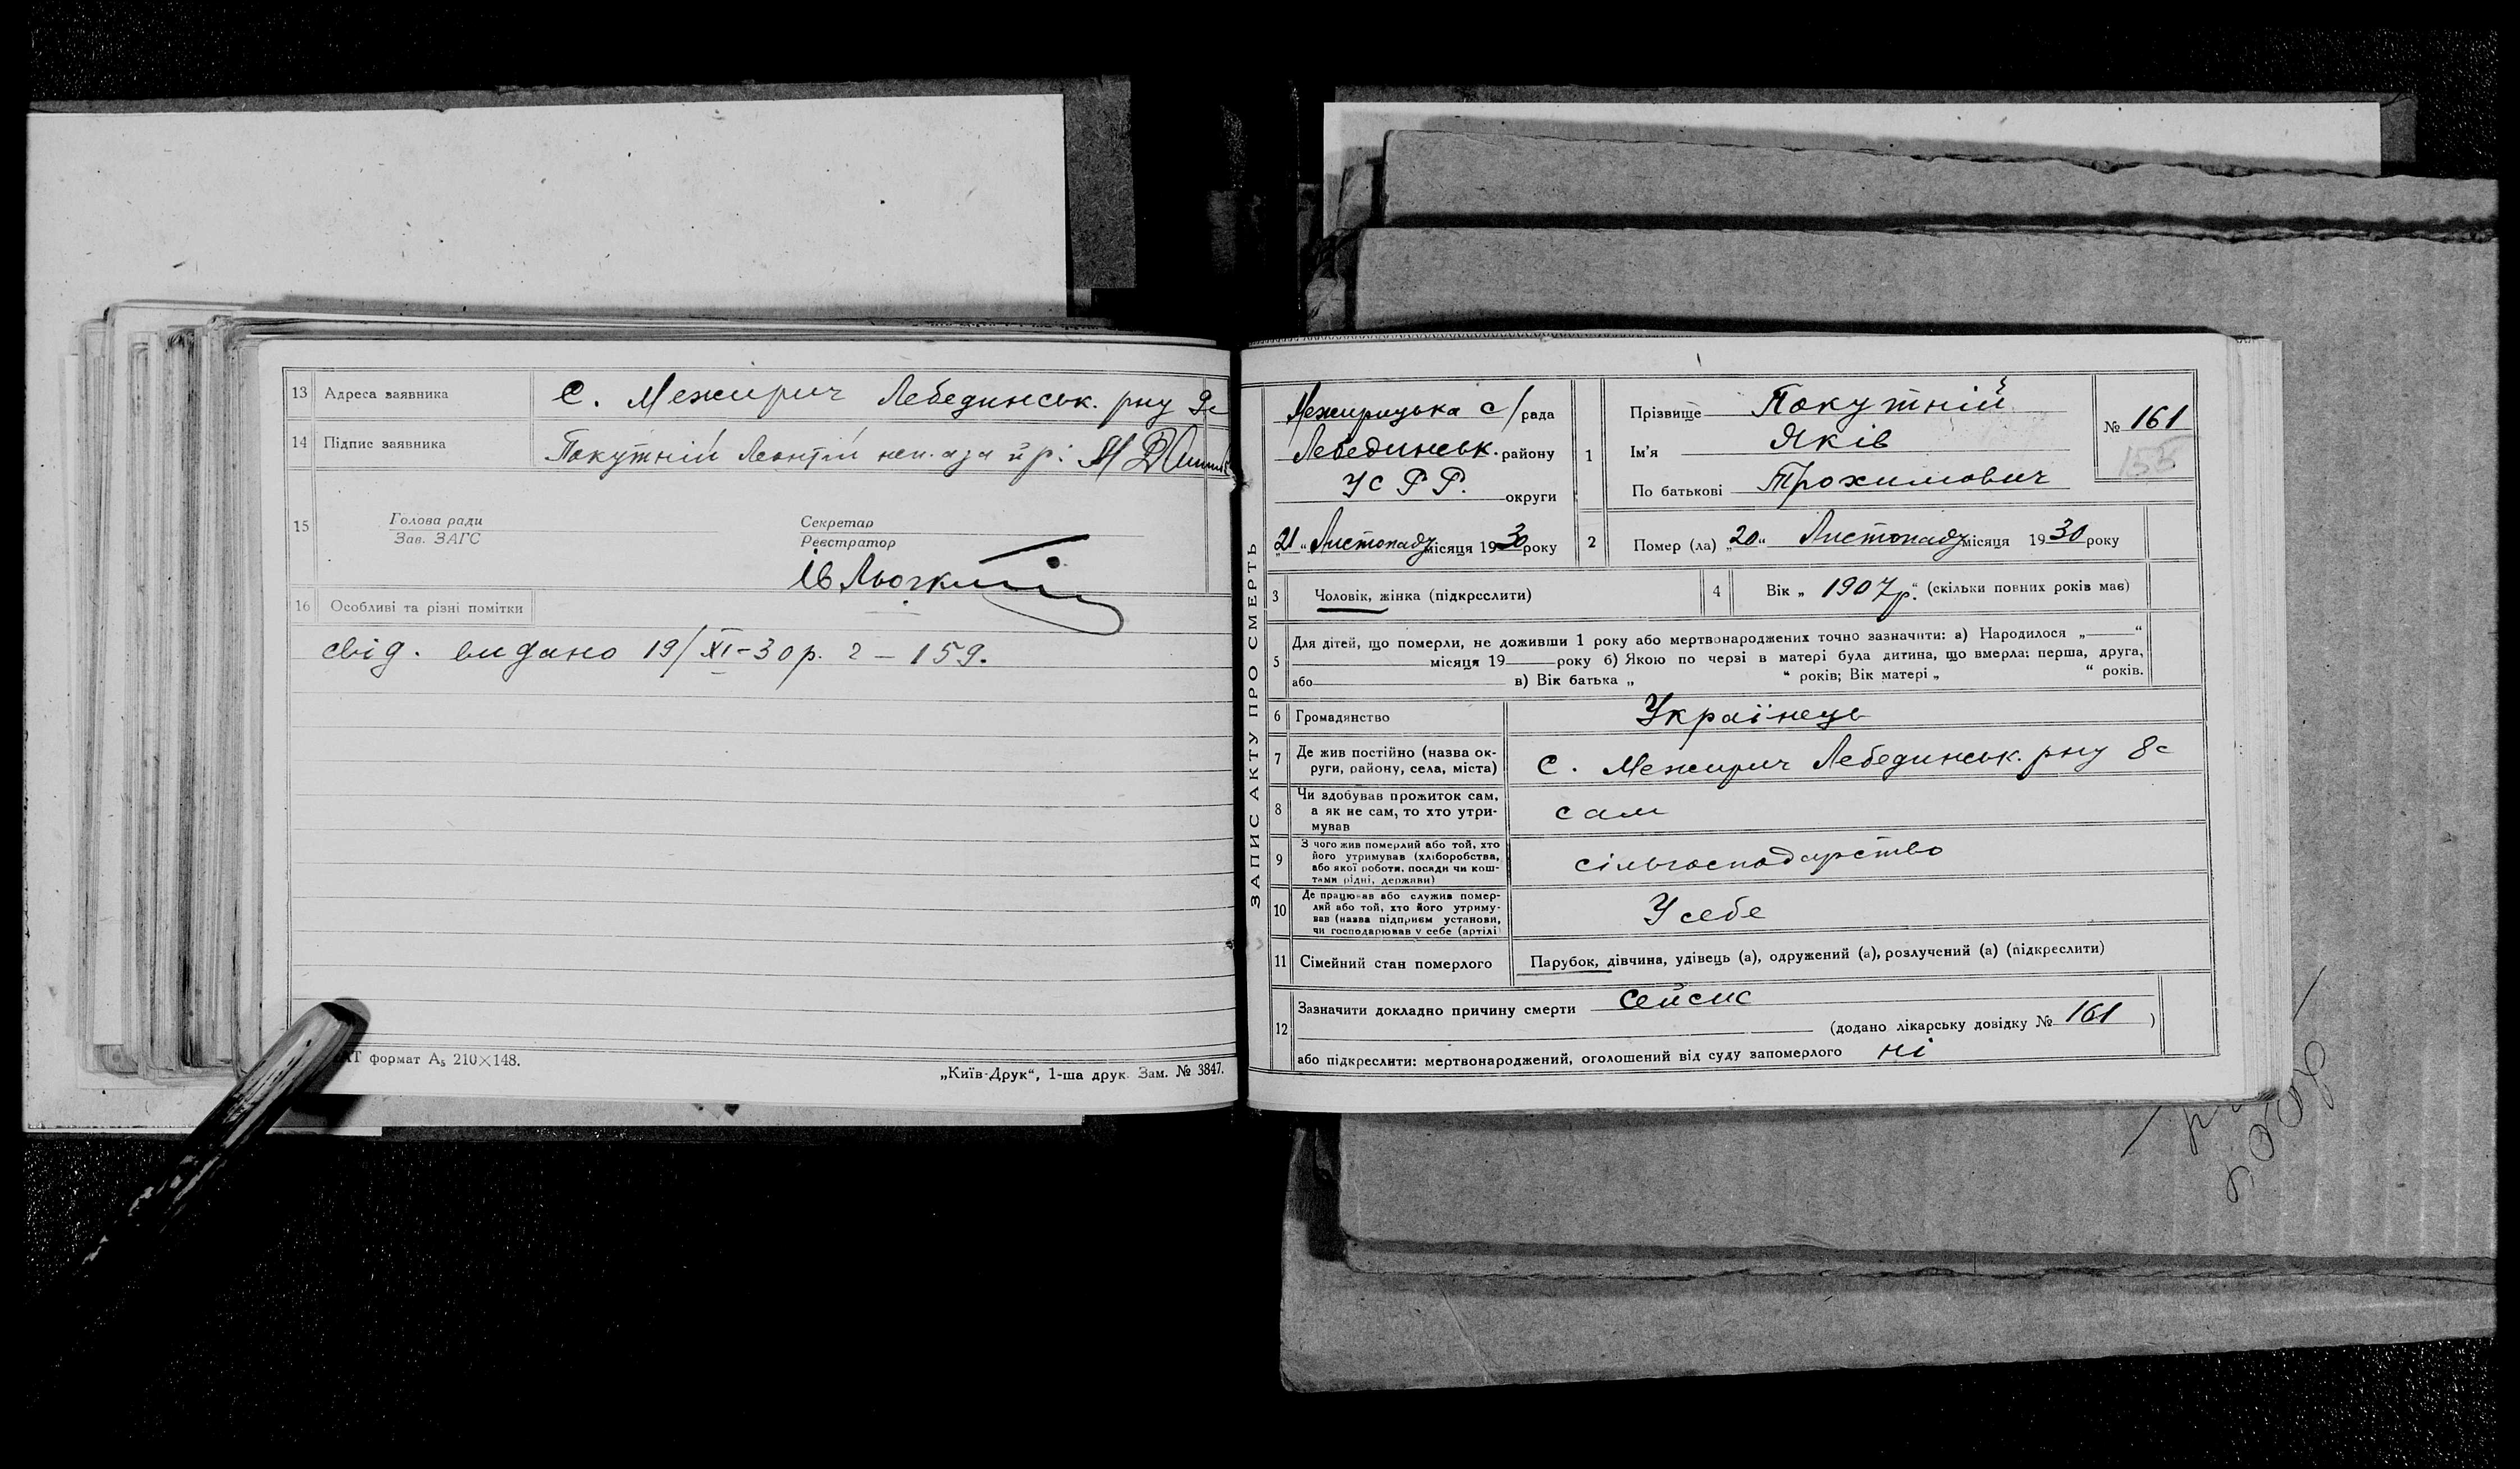 13 Адреса заявника С. Межирич Лебединськ. рну
14 Підпис заявника Покутній Леонтій неп.
15 Голова ради
Зав. ЗАГС
Секретар
Реєстратор
Ів
16 Особливі та різні помітки
свід. видано 19/XI-30р. 2 – 159.
формат А5 210×148.
„Київ-Друк“, 1-ша друк. Зам. № 3847.
ЗАПИС АКТУ ПРО СМЕРТЬ
Межирицька с/рада
Лебединськ. району
УСРР. округи
„21“ Листопаду місяця 1930 року
1 Прізвище Покутній
Ім'я Яків
По батькові Трохимович
№ 161
155
2 Помер (ла) „20“ Листопаду місяця 1930 року
3 Чоловік, жінка (підкреслити)
4 Вік „ 1907р.“ (скільки повних років має)
5 Для дітей, що померли, не доживши 1 року або мертвонароджених точно зазначити: а) Народилося „ “
місяця 19 року б) Якою по черзі в матері була дитина, що вмерла: перша, друга,
або в) Вік батька „ “ років; Вік матері „ “ років.
6 Громадянство Українець
7 Де жив постійно (назва ок-
руги, району, села, міста) С. Межирич Лебединськ. рну 8с
8 Чи здобував прожиток сам,
а як не сам, то хто утри-
мував сам
9 З чого жив померлий або той, хто
його утримував (хліборобства,
або якої роботи, посади чи кош-
тами рідні, держави) сільгосподарство
10 Де працював або служив помер-
лий або той, хто його утриму-
вав (назва підприєм установи,
чи господарював у себе (артілі) У себе
11 Сімейний стан померлого Парубок, дівчина, удівець (а), одружений (а), розлучений (а) (підкреслити)
12 Зазначити докладно причину смерти сейсис
(додано лікарську довідку № 161 )
або підкреслити: мертвонароджений, оголошений від суду запомерлого ні